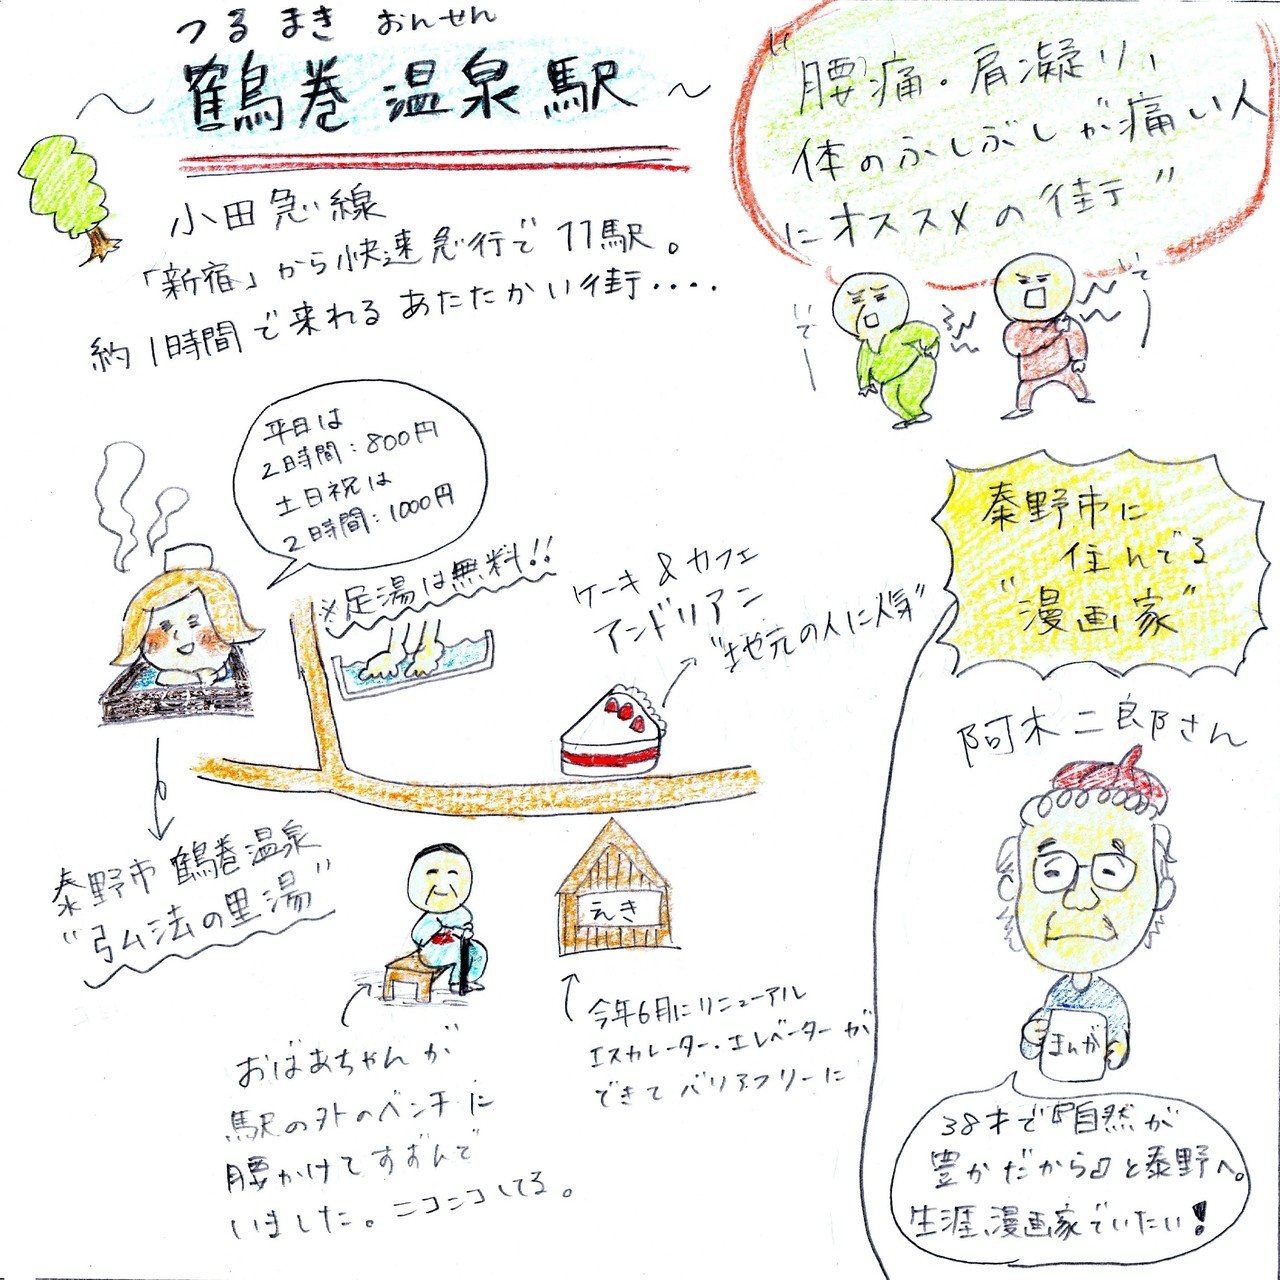 つるまき おんせん
～鶴巻温泉駅～
小田急線
「新宿」から快速急行で11駅。
約1時間で来れるあたたかい街‥‥
"腰痛・肩凝り、
体のふしぶしが痛い人
にオススメの街"
いでー
いでー
平日は
2時間:800円
土日祝は
2時間:1000円
※足湯は無料!!
ケーキ&カフェ
アンドリアン
"地元の人に人気"
秦野市に
住んでる
"漫画家"
阿木二郎さん
まんが
38才で『自然が
豊かだから』と秦野へ。
生涯、漫画家でいたい!
秦野市鶴巻温泉
"弘法の里湯"
えき
今年6月にリニューアル
エスカレーター・エレベーターが
できてバリアフリーに
おばあちゃんが
駅の外のベンチに
腰かけてすずんで
いました。ニコニコしてる。